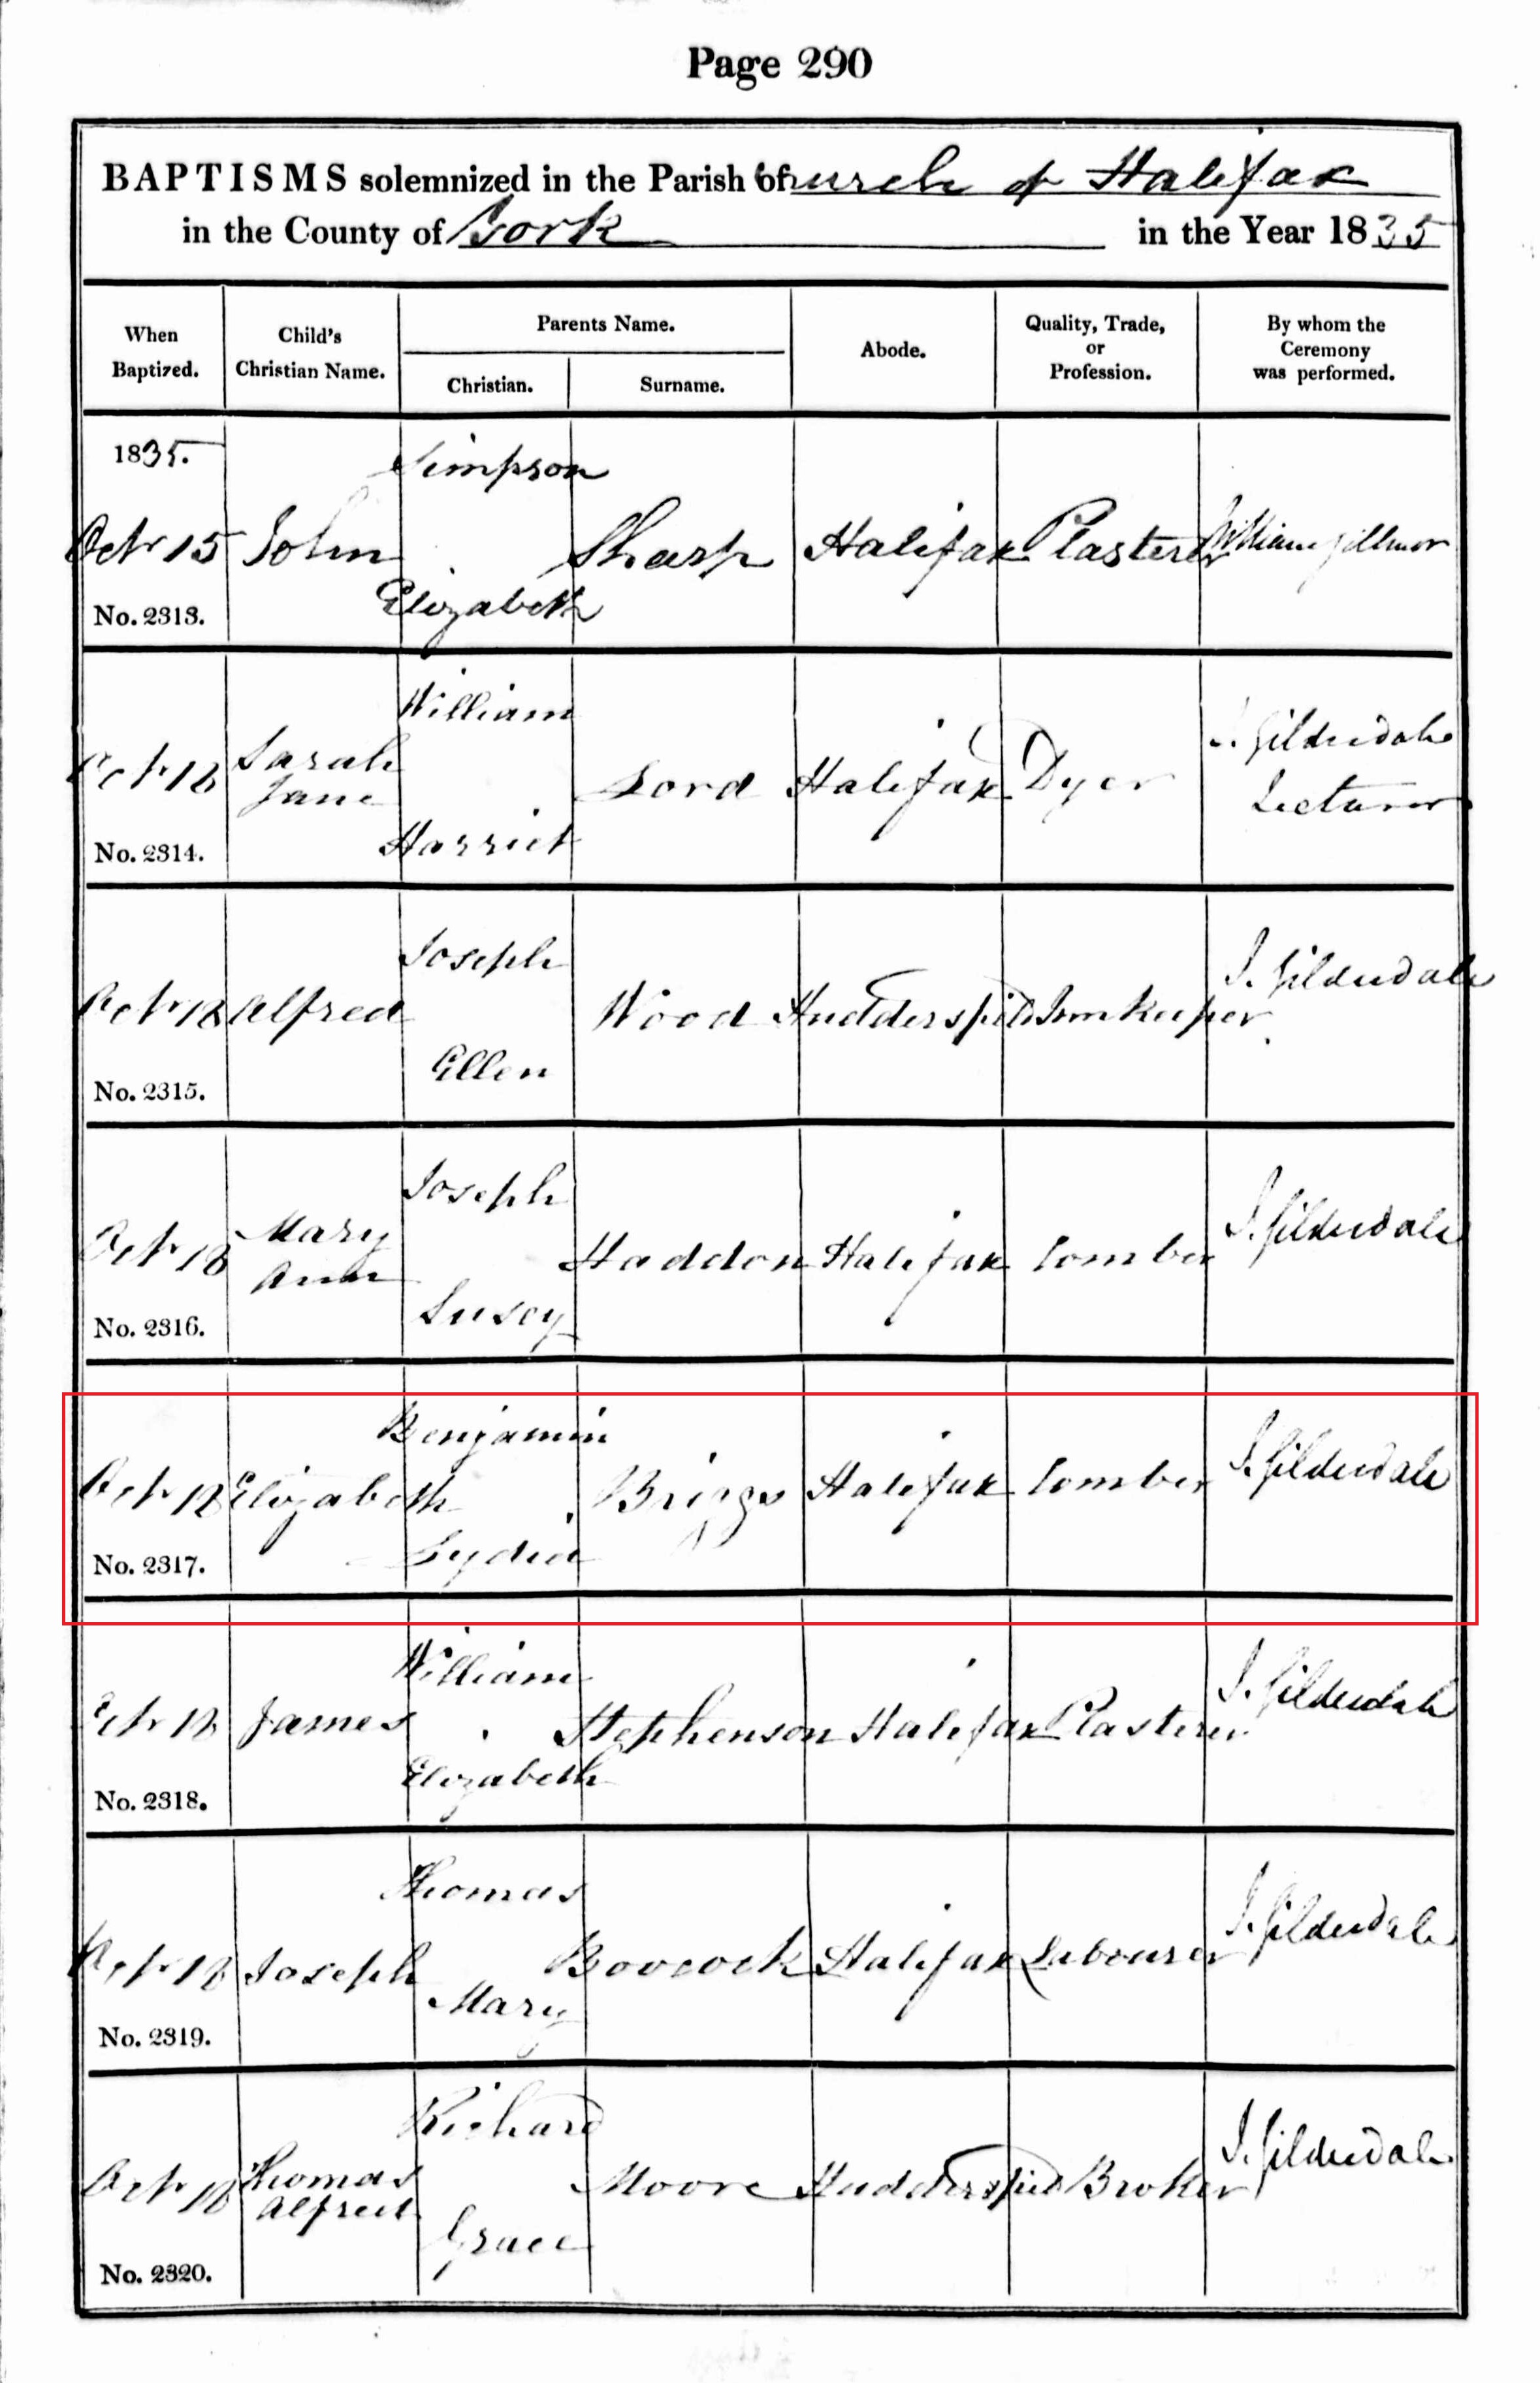 Page 290
BAPTISMS solemnized in the Parish of Church of Halifax
in the County of York in the Year 1835
When Baptized.
Child's Christian Name.
Parents Name.
Christian.
Surname.
Abode.
Quality, Trade, or Profession.
By whom the Ceremony was performed.
1835.
Simpson
Octr 15 John Sharp Halifax Plasterer William Gillmor
Elizabeth
No. 2313.
William
Octr 18 Sarah Jane Lord Halifax Dyer J. Gilderdale Lecturer
Harriet
No. 2314.
Joseph
Octr 18 Alfred Wood Huddersfield Innkeeper J. Gilderdale
Ellen
No. 2315.
Joseph
Octr 18 Mary Ann Haddon Halifax Comber J. Gilderdale
Susey
No. 2316.
Benjamin
Octr 18 Elizabeth Briggs Halifax Comber J. Gilderdale
Lydia
No. 2317.
William
Octr 18 James Stephenson Halifax Plasterer J. Gilderdale
Elizabeth
No. 2318.
Thomas
Octr 18 Joseph Boocock Halifax Labourer J. Gilderdale
Mary
No. 2319.
Richard
Octr 18 Thomas Alfred Moore Huddersfield Broker J. Gilderdale
Grace
No. 2320.